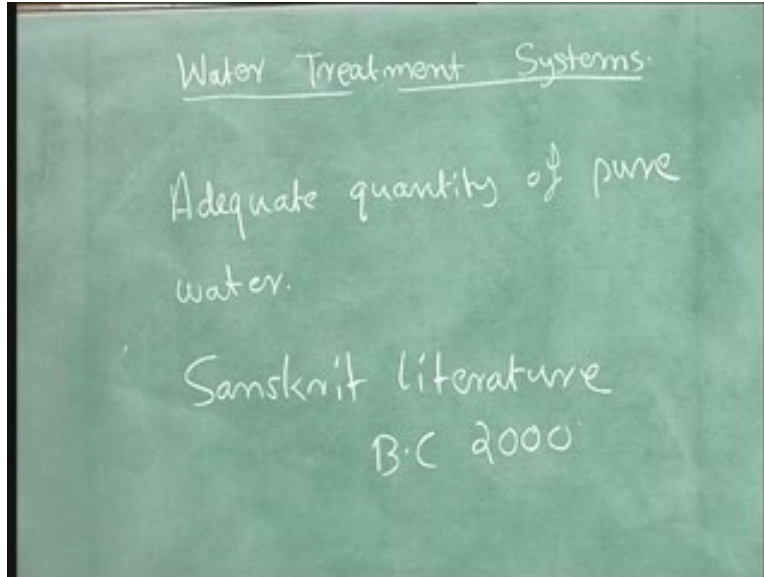 Water Treatment Systems.
Adequate quantity of pure
water.
Sanskrit literature
B.C 2000